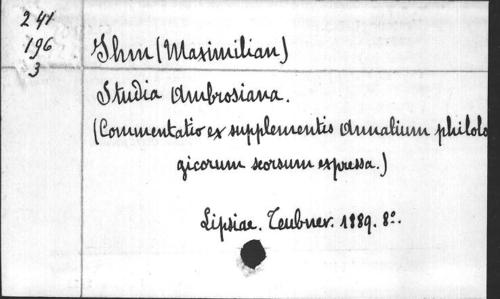 241
196
3
Ihm (Maximilian)
Studia Ambrosiana.
(Commentatio ex supplementis Annalium philolo
gicorum seorsum expressa.)
Lipsiae. Teubner. 1889. 8º.